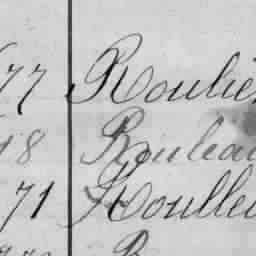 77 Roulie
18 Rouleau
71 Roulle